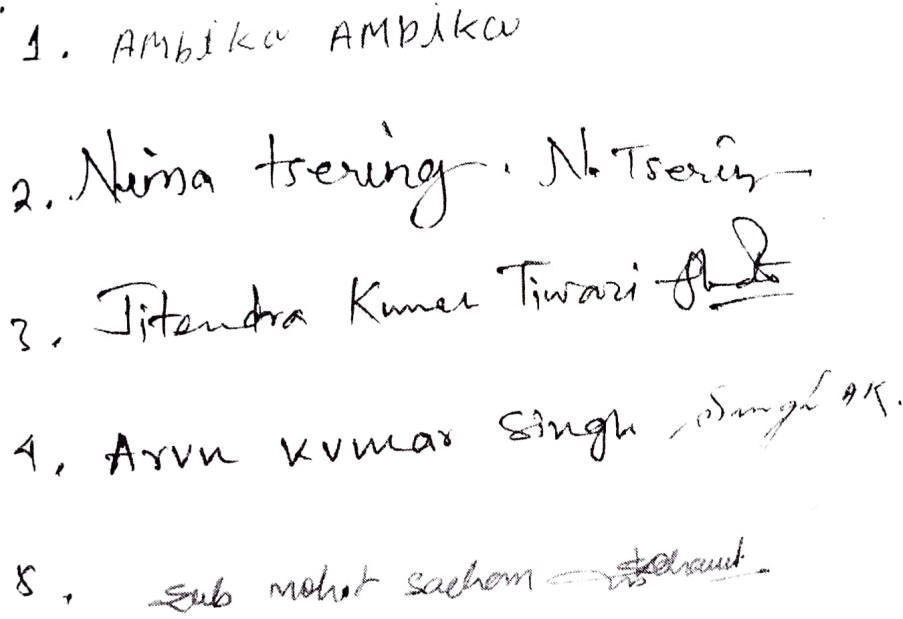 1. AMbika AMbika
2. Nima tsering. N. Tserin
3. Jitendra Kumar Tiwari
4. Arvn kvmar Singh Singh AK.
5. Sub mohot sachom